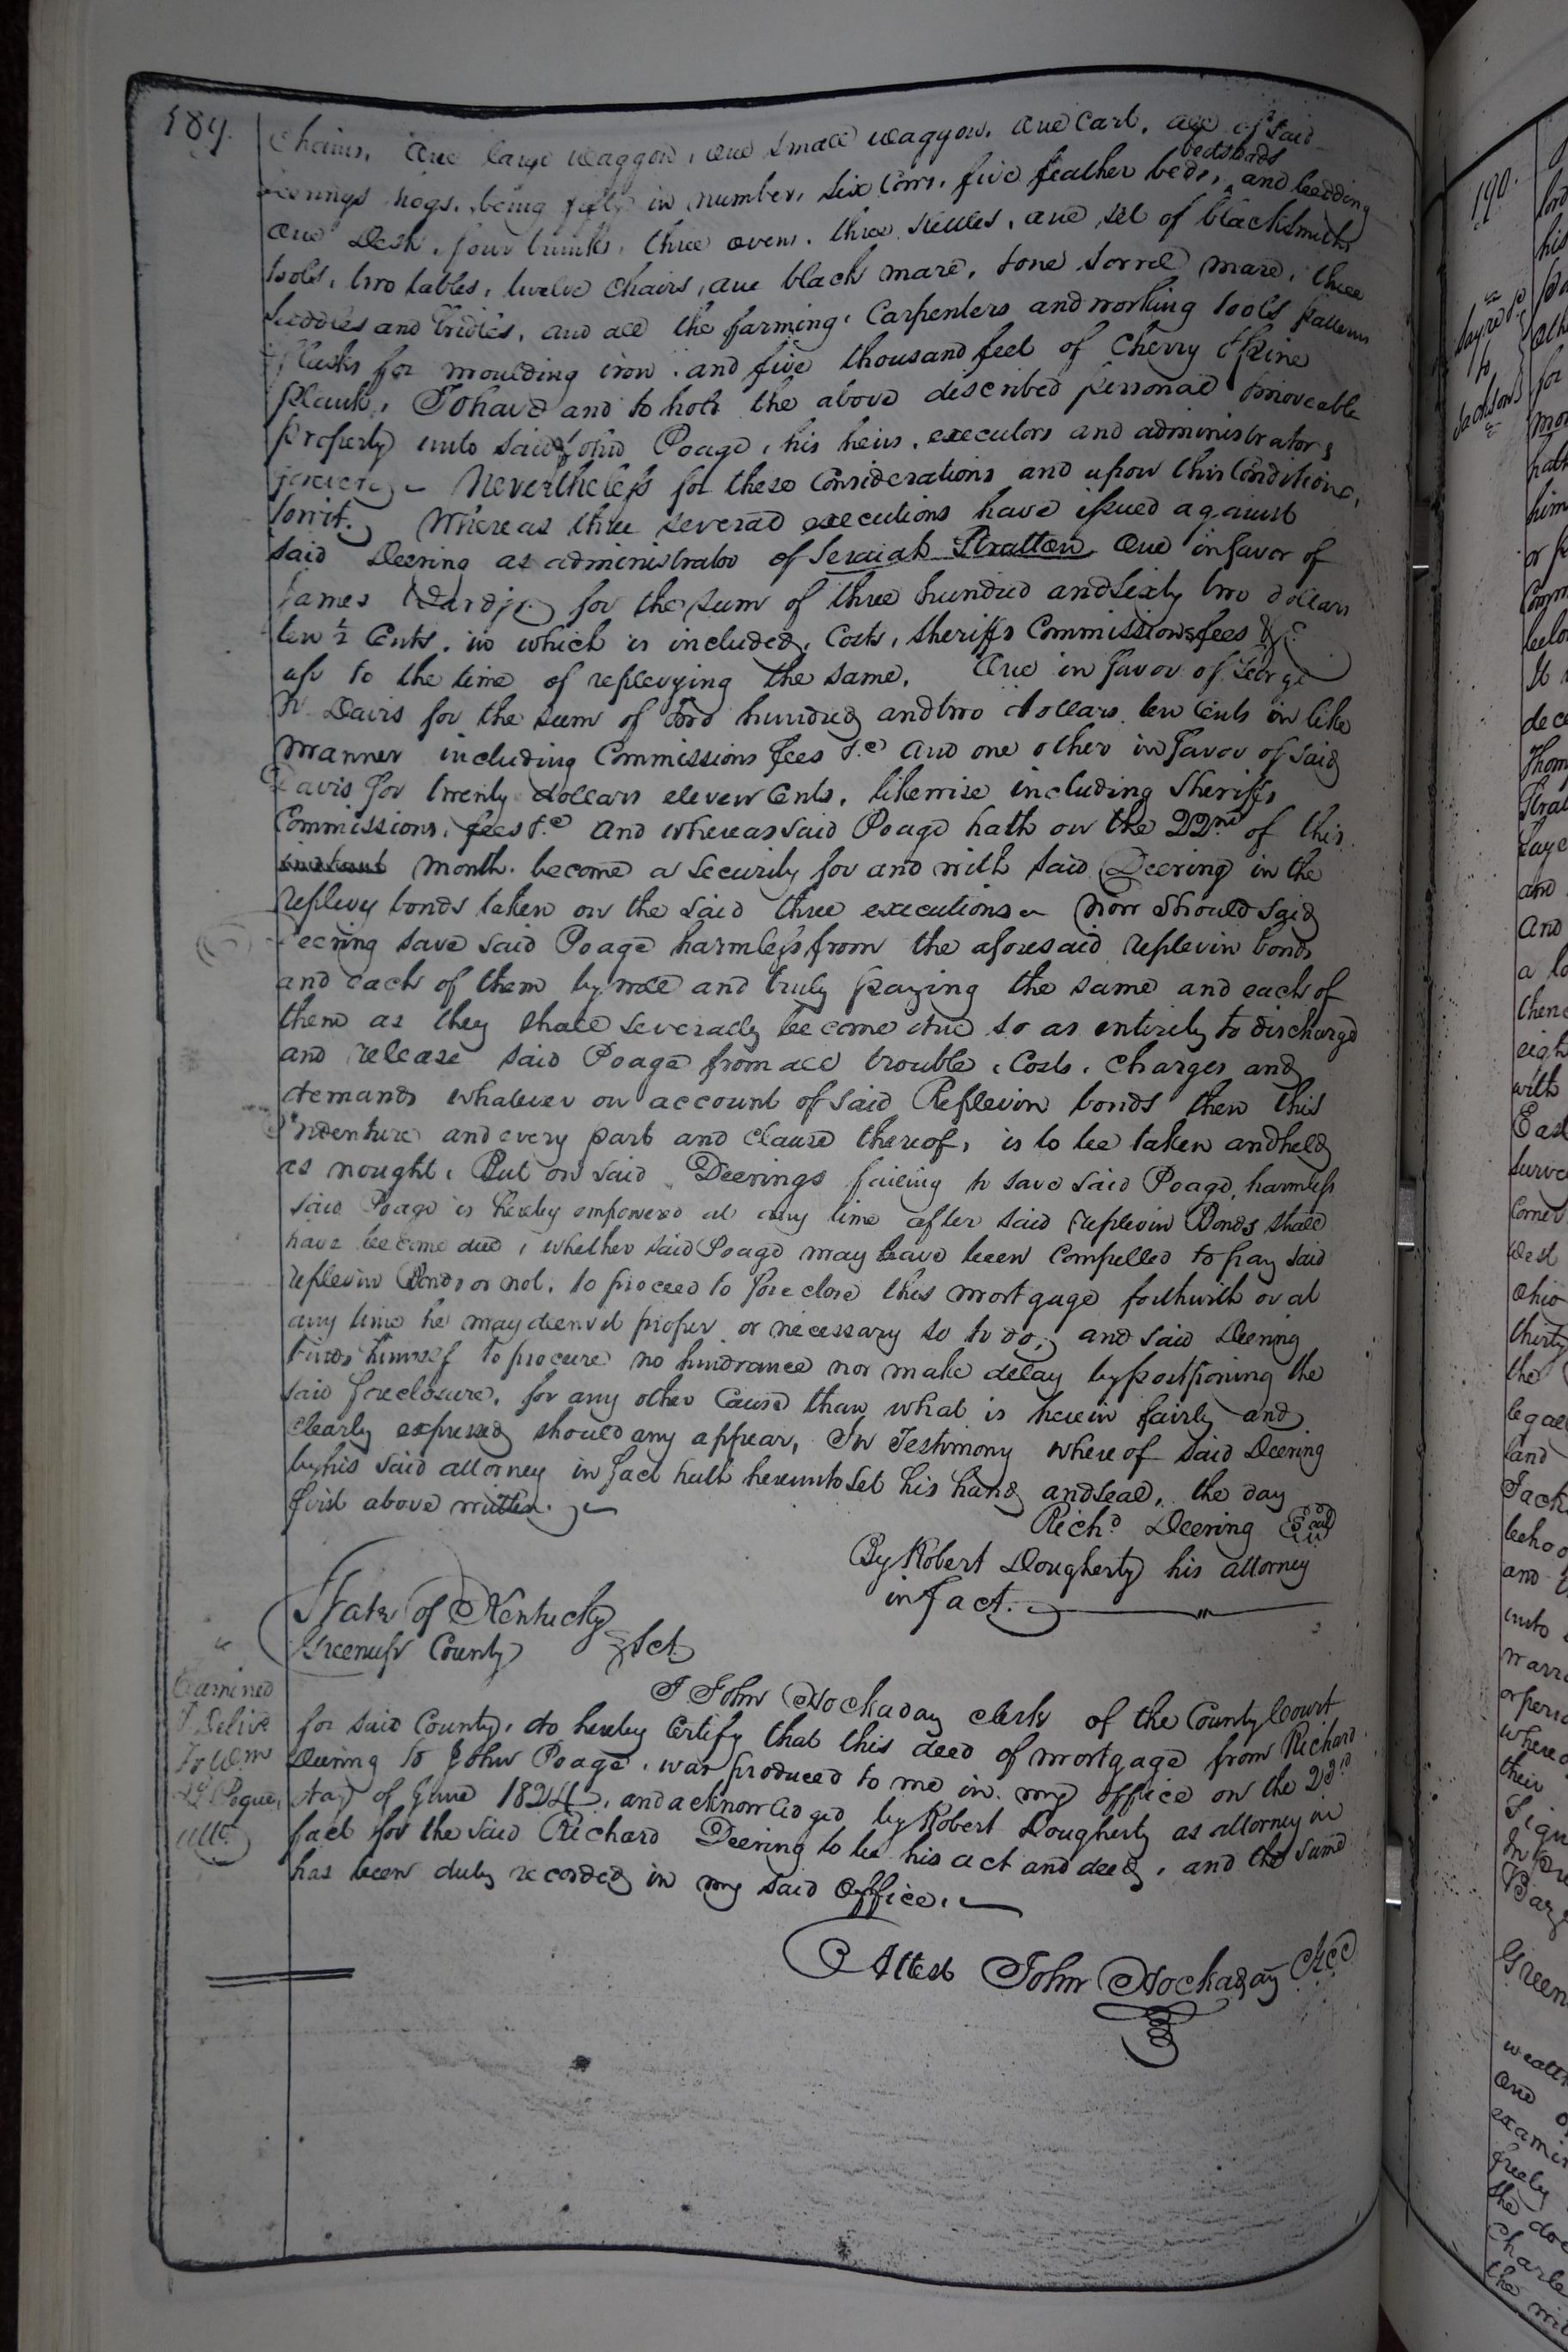 189.
Chains, One large waggon, one small waggon, one Cart, all of said
Deerings hogs, being fifty in number, six Cows, five feather beds, bedsteads and bedding
One Desk, four trunks, three ovens, three kettles, one set of blacksmiths
tools, two tables, twelve Chairs, one black mare, & one sorrel mare, three
saddles and bridles, and all the farming, Carpenters and working tools patterns
flasks for moulding iron, and five thousand feet of Cherry & pine
plank, To have and to hold the above described personal & moveable
property unto said John Poage, his heirs, executors and administrators
forever, Nevertheless for these Considerations and upon this Condition,
towit, Whereas three several executions have issued against
said Deering as administrator of Seraiah Stratton One in favor of
James Ward jr for the sum of three hundred and sixty two dollars
ten ½ Cents, in which is included, Costs, sheriffs Commissions fees &c
up to the time of replevying the same, One in favor of George
N. Davis for the sum of two hundred and two dollars ten Cents in like
manner including Commissions fees &c And one other in favor of said
Davis for twenty dollars eleven Cents, likewise including Sheriffs
Commissions, fees &c And whereas said Poage hath on the 22nd of this
instant month become a security for and with said Deering in the
replevy bonds taken on the said three executions Now should said
Deering save said Poage harmless from the aforesaid replevin bonds
and each of them by well and truly paying the same and each of
them as they shall severally become due so as entirely to discharge
and release said Poage from all trouble, Costs, Charges and
demands whatever on account of said Replevin bonds then this
Indenture and every part and Clause thereof, is to be taken and held
as nought, But on said Deerings failing to save said Poage, harmless
said Poage is hereby empowered at any time after said replevin Bonds shall
have become due, whether said Poage may have been Compelled to pay said
replevin Bonds or not, to proceed to foreclose this mortgage forthwith or at
any time he may deem it proper or necessary so to do, and said Deering
binds himself to procure no hindrance nor make delay by postponing the
said foreclosure, for any other Cause than what is herein fairly and
Clearly expressed should any appear, In Testimony whereof said Deering
by his said attorney in fact hath hereunto set his hand and seal, the day
first above written.
Richd Deering Seal
By Robert Dougherty his attorney
in fact.
State of Kentucky
Greenup County Sct
I John Hockaday clerk of the County Court
for said County, do hereby Certify that this deed of mortgage from Richard
Deering to John Poage, was produced to me in my office on the 23rd
day of June 1824, and acknowledged by Robert Dougherty as attorney in
fact for the said Richard Deering to be his act and deed, and the same
has been duly recorded in my said Office.
Attest John Hockaday Clk
Examined
& Delivd
To Wm
Pogue,
190.
Sayre
to
Jackson